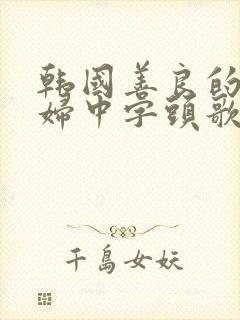 韩國善良的
婦中字頭歌
千島女妖